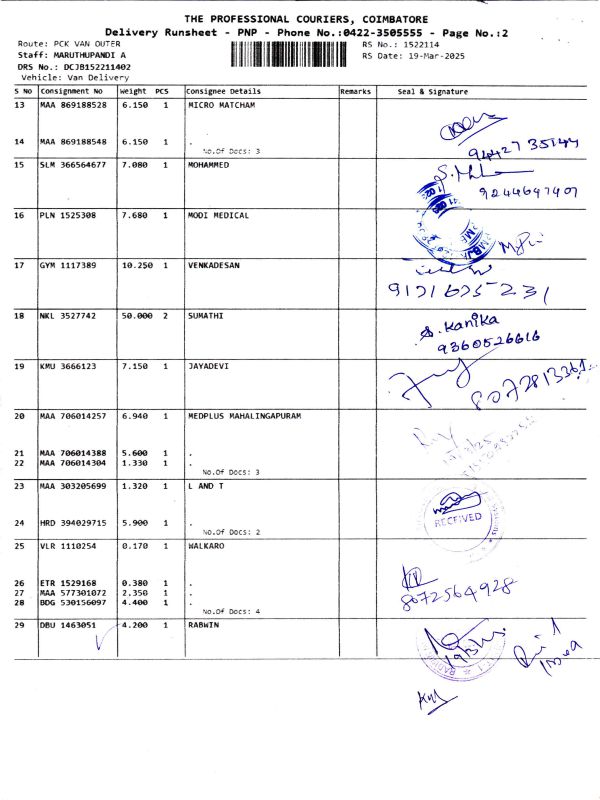 THE PROFESSIONAL COURIERS, COIMBATORE
Delivery Runsheet - PNP - Phone No.:0422-3505555 - Page No.:2
Route: PCK VAN OUTER
RS No.: 1522114
Staff: MARUTHUPANDI A
RS Date: 19-Mar-2025
DRS No.: DCJB152211402
Vehicle: Van Delivery
S No Consignment No Weight PCS Consignee Details Remarks Seal & Signature
13 MAA 869188528 6.150 1 MICRO MATCHAM
14 MAA 869188548 6.150 1 .
No.Of Docs: 3
94427 35144
15 SLM 366564677 7.080 1 MOHAMMED
9244647407
16 PLN 1525308 7.680 1 MODI MEDICAL
17 GYM 1117389 10.250 1 VENKADESAN
9171675 231
18 NKL 3527742 50.000 2 SUMATHI
S. Kanika
9360526616
19 KMU 3666123 7.150 1 JAYADEVI
8072813361
20 MAA 706014257 6.940 1 MEDPLUS MAHALINGAPURAM
21 MAA 706014388 5.600 1 .
22 MAA 706014304 1.330 1 .
No.Of Docs: 3
23 MAA 303205699 1.320 1 L AND T
RECEIVED
24 HRD 394029715 5.900 1 .
No.Of Docs: 2
25 VLR 1110254 0.170 1 WALKARO
26 ETR 1529168 0.380 1 .
27 MAA 577301072 2.350 1 .
28 BDG 530156097 4.400 1 .
No.Of Docs: 4
8072564928
29 DBU 1463051 4.200 1 RABWIN